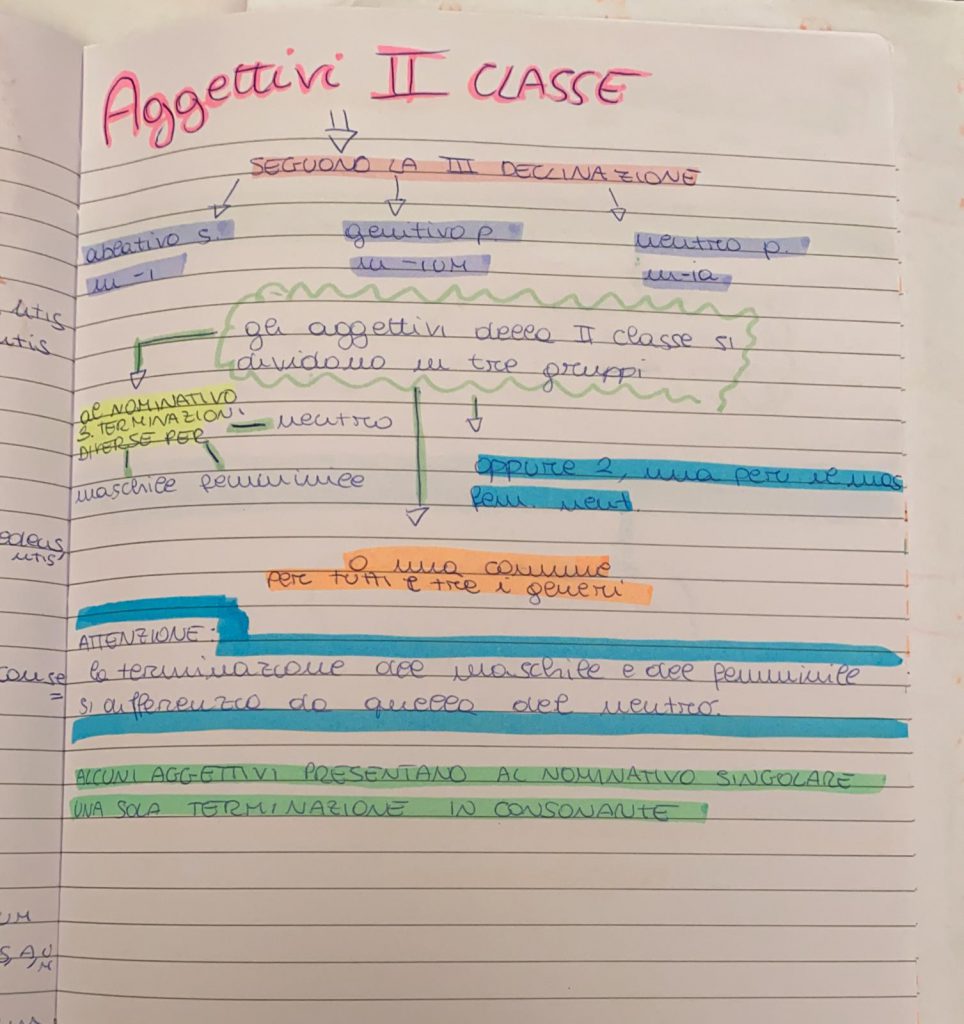 Aggettivi II CLASSE
SEGUONO LA III DECLINAZIONE
ablativo s.
in -i
genitivo p.
in -IUM
neutro p.
in -ia
gli aggettivi della II classe si
dividono in tre gruppi
al NOMINATIVO
3. TERMINAZIONI
DIVERSE PER
neutro
maschile femminile
oppure 2, una per il mas
fem. neut.
O una comune
per tutti e tre i generi
ATTENZIONE:
la terminazione del maschile e del femminile
si differenzia da quella del neutro.
ALCUNI AGGETTIVI PRESENTANO AL NOMINATIVO SINGOLARE
UNA SOLA TERMINAZIONE IN CONSONANTE